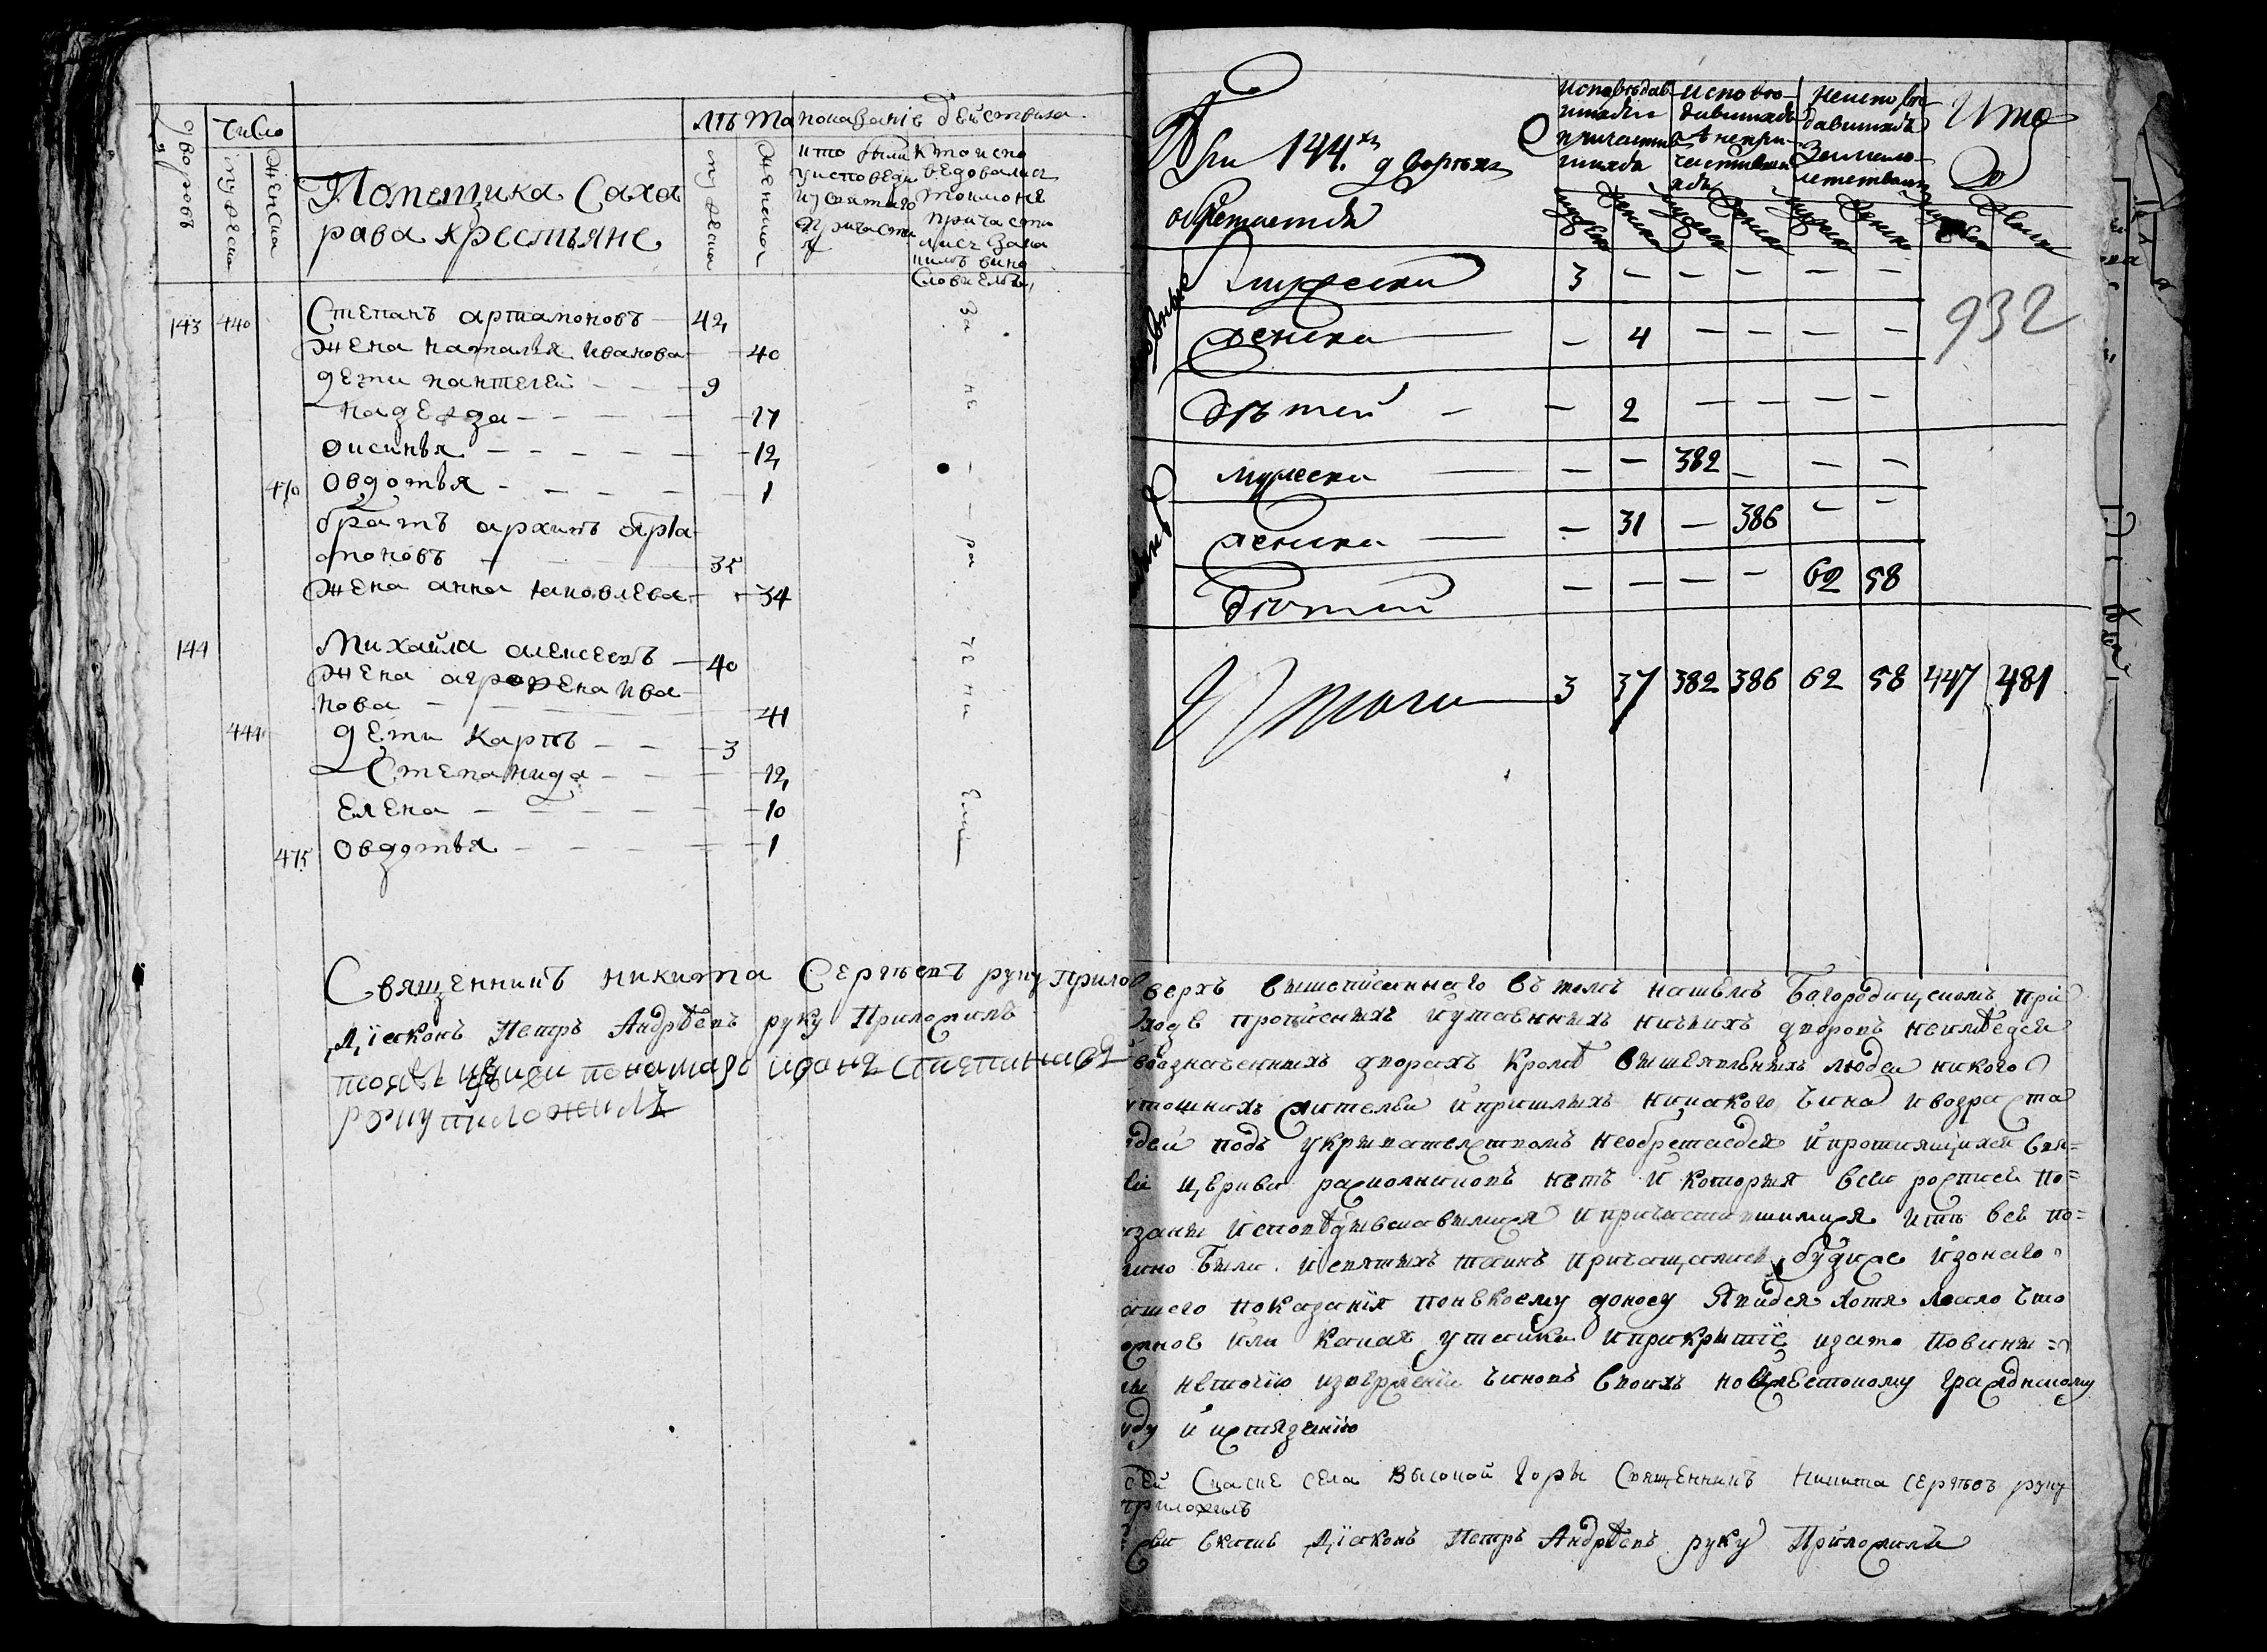 дворовъ
число
мужеска
женска
Помещика Саха
рава крестьяне
лѣта
мужеска
женска
показаніе действиха
кто были
уисповеди
исвятаго
причасти
я
кто испо
ведовались
токмо не
причасти
лись заки
мъ вино
словиемъ
143 440 Степанъ артамоновъ — 42
жена наталья иванова — 40
дети пантелей — 9
надежда — 17
оксинья — 12
470 овдотья — 1
братъ архипъ арта
моновъ — 35
жена анна яковлева — 34
144 Михайла алексеевъ — 40
жена агрофена ива
нова — 41
441 дети карпъ — 3
Степанида — 12
елена — 10
475 овдотья — 1
за не ра че ни емъ
Священникъ никита Сергѣевъ руку прило
Діаконъ Петръ Андрѣевъ руку Приложилъ
понамарь иванъ Степановъ
руку приложилъ
При 144.хъ дворѣхъ
обретается
исповѣдав
шихся
причастив
шихся
испове
давшихся
а непри
частивши
хся
неиспове
давшихся
замало
летством
Ито
го
мужска женска мужска женска мужска женска мужска женска
мужеска 3 — — — — —
932
женска — 4 — — — —
дѣтей — 2 — — — —
мужеска — — 382 — — —
женска — 31 — 386 — —
дѣтей — — — — 62 58
Итого 3 37 382 386 62 58 447 481
верхъ вышеписаннаго въ томъ нашемъ Багородицкомъ при
ходе прописныхъ иутаенныхъ никакихъ дворовъ неимѣется
возначенныхъ дворахъ кромѣ вышеявленныхъ людей никого
жителей ипришлыхъ никакого чина ивозраста
дей подъ укрывательствомъ необретается ипротивящихся свя=
ей церкви раскольниковъ нетъ и которыя всей росписи по=
казаны исповѣдывавшимися ипричастившимися итѣ все по=
были. исвятыхъ таинъ причащались будже изонаго
ашего показанія понекоему доносу явится хотя мало что
ожное или какая утайка иприкрытіе изато повинны =
неточію изверженію чиновъ своихъ но гражданскому
уду и истязанію
сей Скаске села высокой горы Священникъ Никита сергѣевъ руку
приложилъ
скаске Діаконъ Петръ Андрѣевъ руку Приложилъ